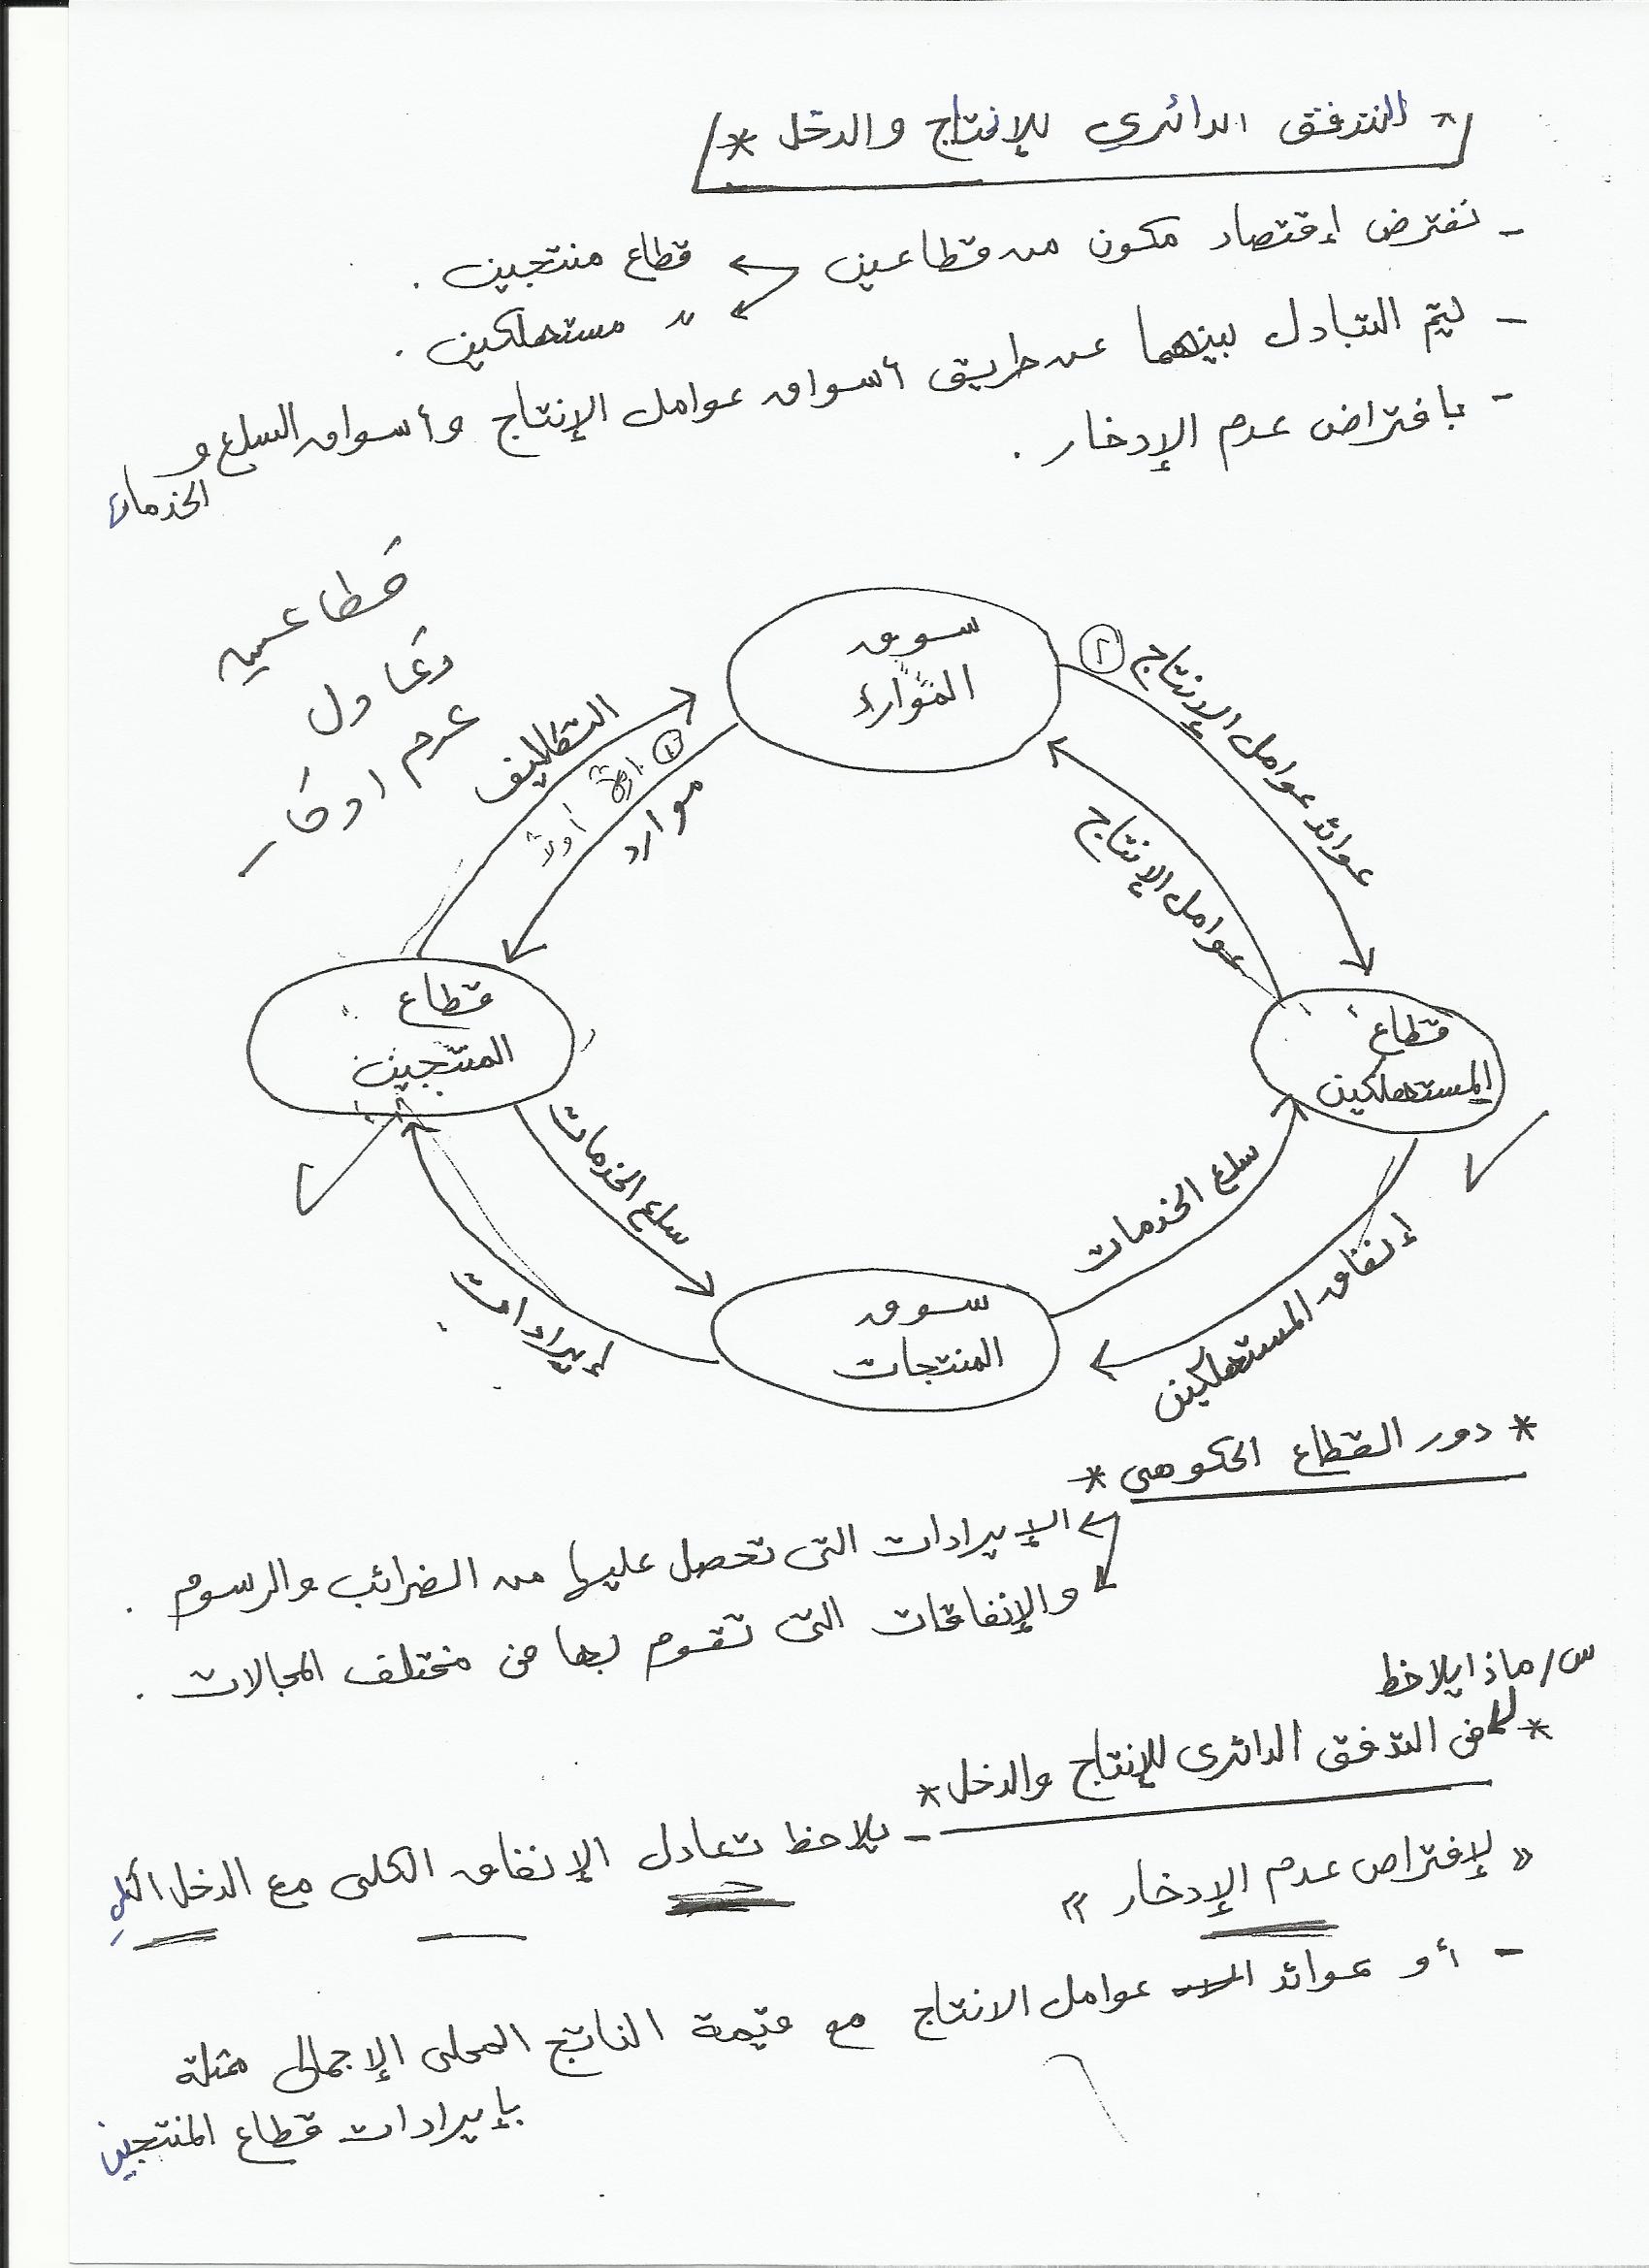 * التدفق الدائري للإنتاج والدخل *
- نفترض إقتصاد مكون من قطاعين قطاع منتجين .
" مستهلكين .
- ليتم التبادل بينهما عن طريق أسواق عوامل الإنتاج وأسواق السلع و
الخدمات
- بافتراض عدم الإدخار .
قطاعين
تعادل
عدم ادخار
سوق
الموارد
٢ عوائد عوامل الإنتاج
عوامل الإنتاج
التكاليف
١
أولاً
موارد
قطاع
المنتجين
قطاع
المستهلكين
سلع الخدمات
إيرادات
سلع الخدمات
إنفاق المستهلكين
سوق
المنتجات
* دور القطاع الحكومى *
الإيرادات التى تحصل عليها من الضرائب والرسوم .
والإنفاقات التى تقوم بها فى مختلف المجالات .
س/ماذا يلاحظ
* فى التدفق الدائرى للإنتاج والدخل *
- يلاحظ تعادل الإنفاق الكلى مع الدخل الكلي
« لإفتراض عدم الإدخار »
- أو عوائد عوامل الانتاج مع قيمة الناتج المحلى الإجمالى ممثلة
بإيرادات قطاع المنتجين